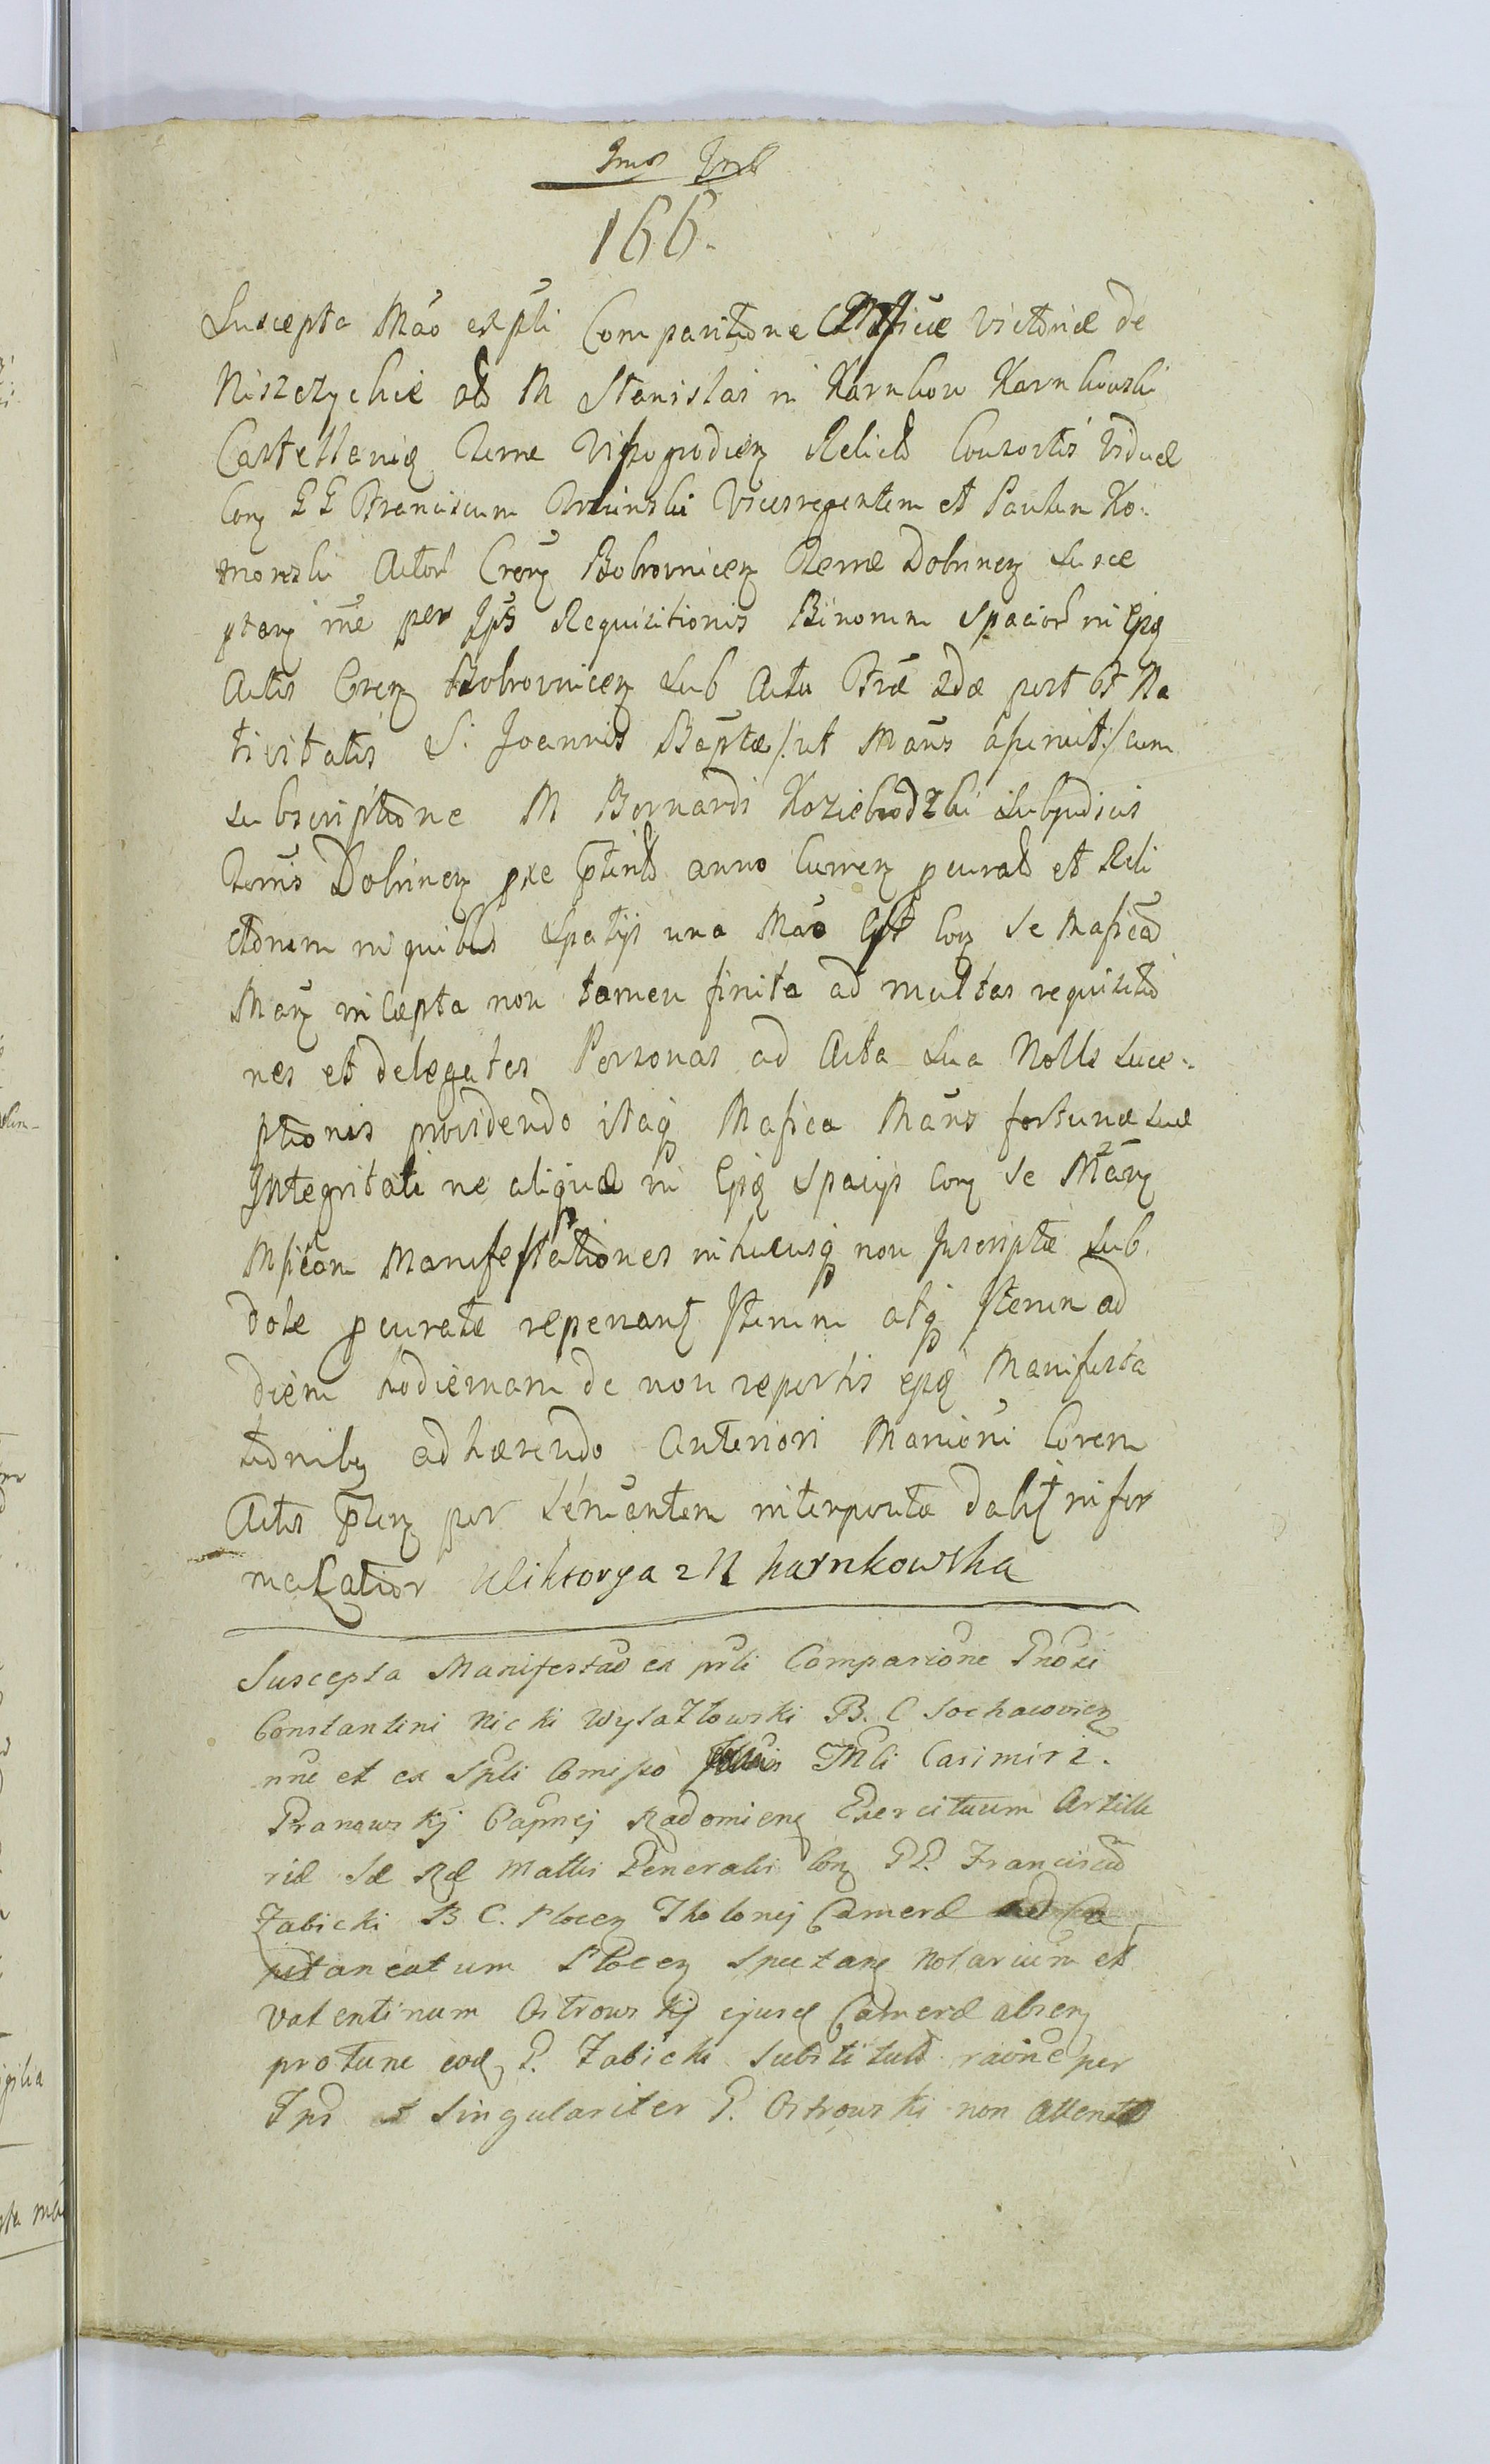 166.
Suscepta Mão ex pſli Comparitione Mficæ Victoriæ de
Niszczychie olõ M Stanislai in Karnkow Karnkowski
Castellaniʒ Terræ Vissogrodienʒ Relictæ Consortis Viduæ
Conʒ GG Franciscum Trzcinski Vicesregentem et Paulum Ko:
morski Actorũ Crenʒ Bobrovnicenʒ Terræ Dobrinenʒ Susce
ptanʒ rñe per Jpſõs Requisitionis Binorum spaciorũ in Ejsʒ
Actis Crenʒ Bobrovnicenʒ Sub Actu Fræ 2dæ post Fſt Na
tivitatis S. Joannis Baptæ /: ut Mans aſseruit :/ cum
subscriptione M Bernardi Koziebrodzki Subjudicis
Terris Dobrinenʒ pxe pſterito anno Currenʒ pcurato et Reli
ctorum in quibus Spatijs una Mão Est Conʒ Se Maficã
Manʒ incæpta non tamen finita ad multas requisitio
nes et delegatas Personas ad Acta Sua Nolle Susce-
ptionis providendo itaq Mafica Mans fortunæ suæ
Integritati ne aliquæ in Ejsʒ Spacijs Conʒ Se Manʒ
Mficam Manifestationes in hucusq non Inscriptæ Sub
dole pcuratæ reperianʒ Iterum atq Iterum ad
diem hodiernam de non repertis ejsʒ Manifesta
tionibʒ adhærendo Anteriori Manioni Coram
Actis pſlenʒ per Servientem interposita dabiʒ infor
matior Wiktorya z N karnkowska
Suscepta Manifestaõ ex prſli Comparitione Gnosi
Constantini Nicki Wysatzlowski B. C Sochacovienʒ
nne et ex Sſpli Comiſso Mſli Casimiri
Granowskj Capnej Radomienʒ Exercituum Artille
riæ Sæ Ræ Mattis Generalis Conʒ GG. Franciscũ
Zabicki B C. Plocenʒ Tholonej Cameræ ad Ca
pitaneatum Plocenʒ Spectanʒ Notarium et
Valentinum Ostrowskj ejusd Cameræ absenʒ
protunc eod G. Zabicki Substitutũ raõne per
Ipsõ et Singulariter G. Ostrowski non Attento